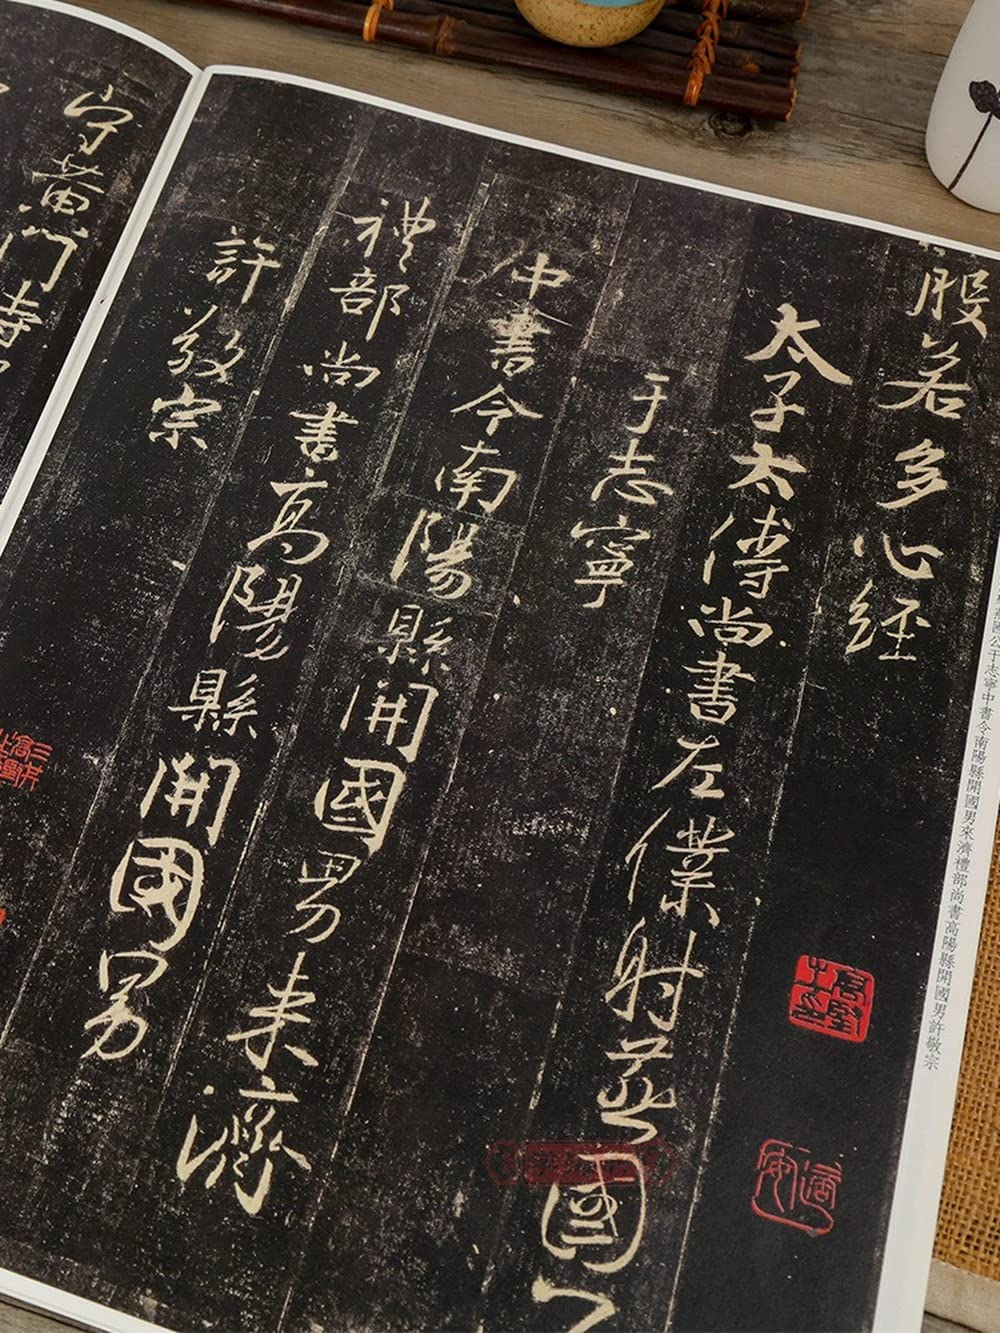 般若多心經
太子太傅尚書左僕射燕國公
于志寧
中書令南陽縣開國男来濟
禮部尚書高陽縣開國男
許敬宗
守黄門侍
國公于志寧中書令南陽縣開國男來濟禮部尚書高陽縣開國男許敬宗